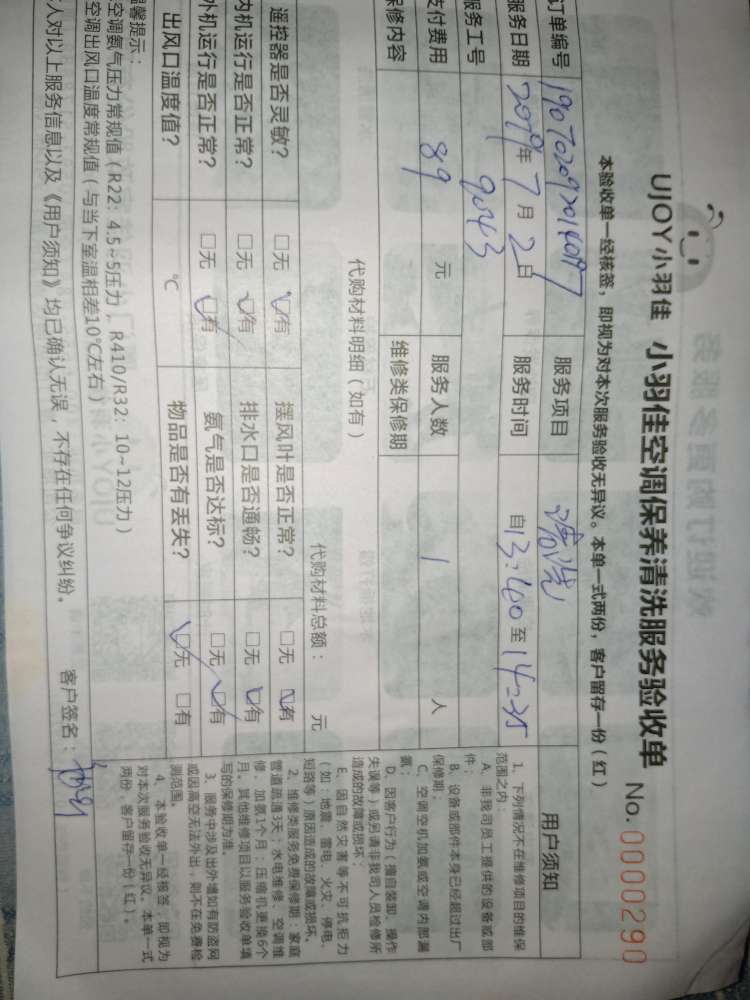 UJOY小羽佳 小羽佳空调保养清洗服务验收单 No. 0000290
本验收单一经核签，即视为对本次服务验收无异议。本单一式两份，客户留存一份（红）
订单编号 服务项目 清洗
服务日期 2019年7月2日 服务时间 自13:40至14:35
服务工号 9043
支付费用 89 元 服务人数 1 人
保修内容 维修类保修期
代购材料明细（如有）
代购材料总额： 元
遥控器是否灵敏？ □无 □有 摆风叶是否正常？ □无 □有
内机运行是否正常？ □无 □有 排水口是否通畅？ □无 □有
外机运行是否正常？ □无 □有 氨气是否达标？ □无 □有
出风口温度值？ ℃ 物品是否有丢失？ □无 □有
用户须知
1、下列情况不在维修项目的维保
范围之内：
A、非我司员工提供的设备或部
件；
B、设备或部件本身已经超过出厂
保修期；
C、空调空机加氨或空调内部漏
氨；
D、因客户行为（擅自装卸、操作
失误等）或另请非我司人员检修所
造成的故障或损坏；
E、因自然灾害等不可抗拒力
（如：地震、雷电、火灾、停电、
短路等）原因造成的故障或损坏。
2、维修类服务免费保修期：家庭
管道疏通3天；水电维修、空调维
修、加氨1个月；压缩机更换6个
月。其他维修项目以服务验收单填
写的保修期为准。
3、服务中涉及出外墙如有防盗网
或因高空无法外出，则不在免费检
测范围。
4、本验收单一经核签，即视为
对本次服务验收无异议。本单一式
两份，客户留存一份（红）。
温馨提示：
空调氨气压力常规值（R22：4.5~5压力，R410/R32：10~12压力）
空调出风口温度常规值（与当下室温相差10℃左右）
人对以上服务信息以及《用户须知》均已确认无误，不存在任何争议纠纷。 客户签名：